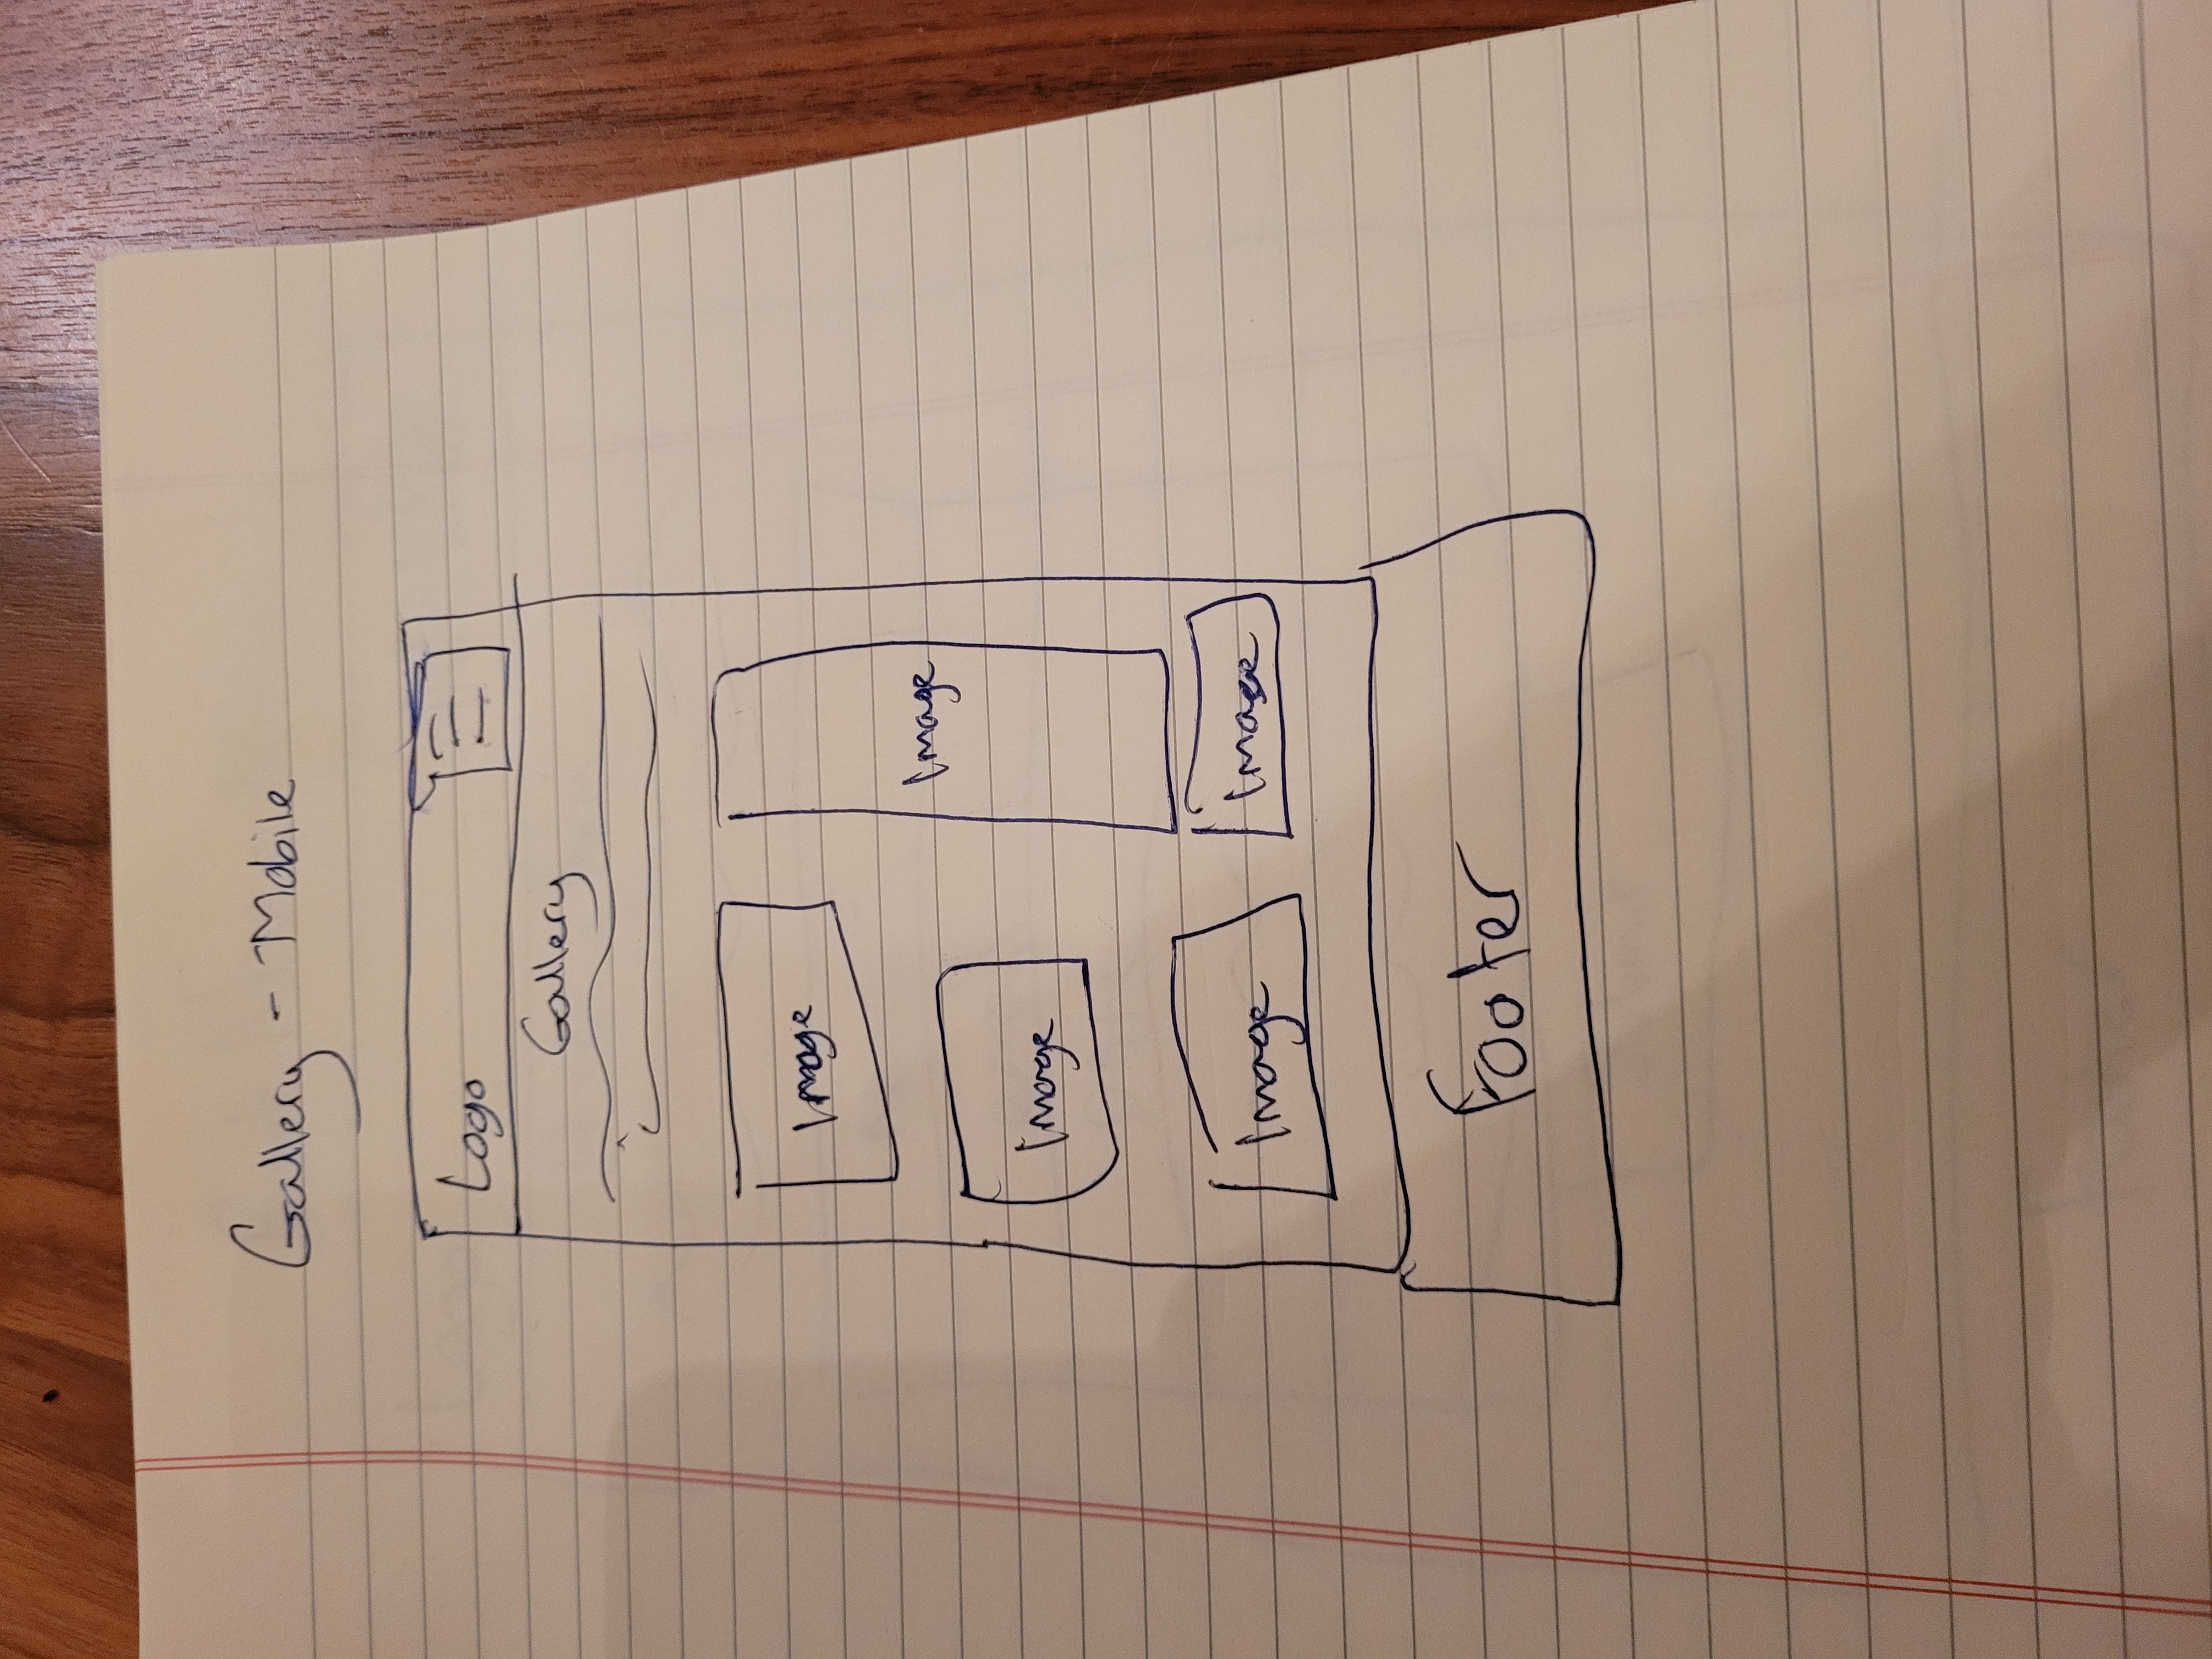 Gallery - Mobile
Logo
Gallery
Image
Image
Image
Image
Image
Footer